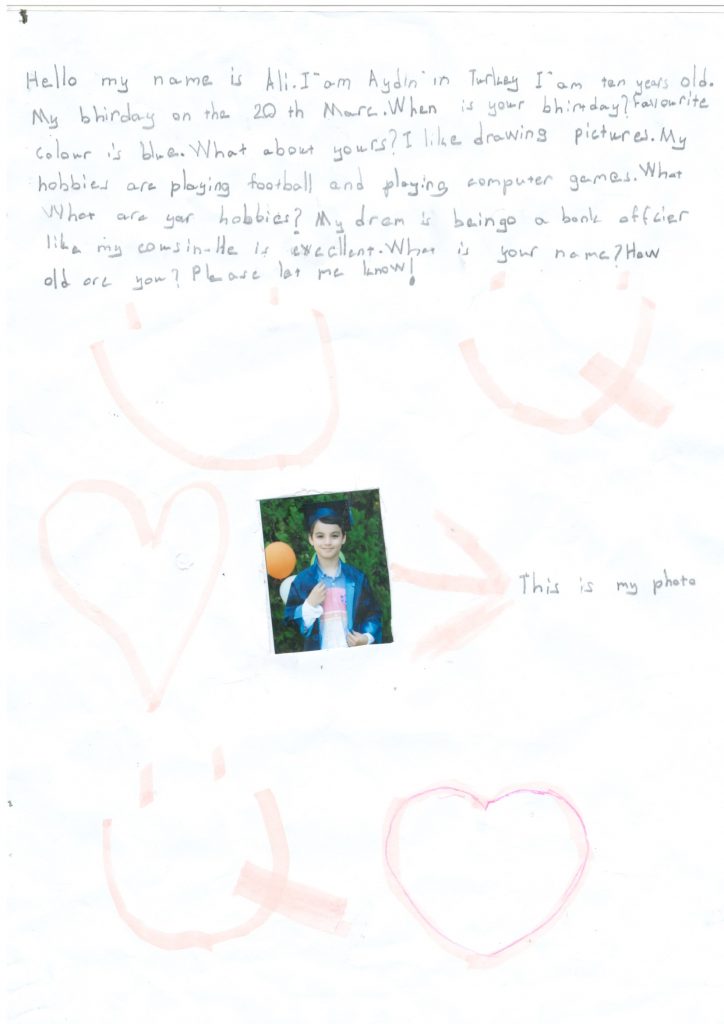 Hello my name is Ali.I'am Aydin in Turkey I'am ten years old.
My bhirday on the 20 th Marc.When is your bhirtday?Favourite
colour is blue.What about yours?I like drawing pictures.My
hobbies are playing football and playing computer games.What
What are yar hobbies? My drem is beingo a bank offcier
like my cousin-He is execllent.What is your name?How
old are you? Please let me know!
This is my photo